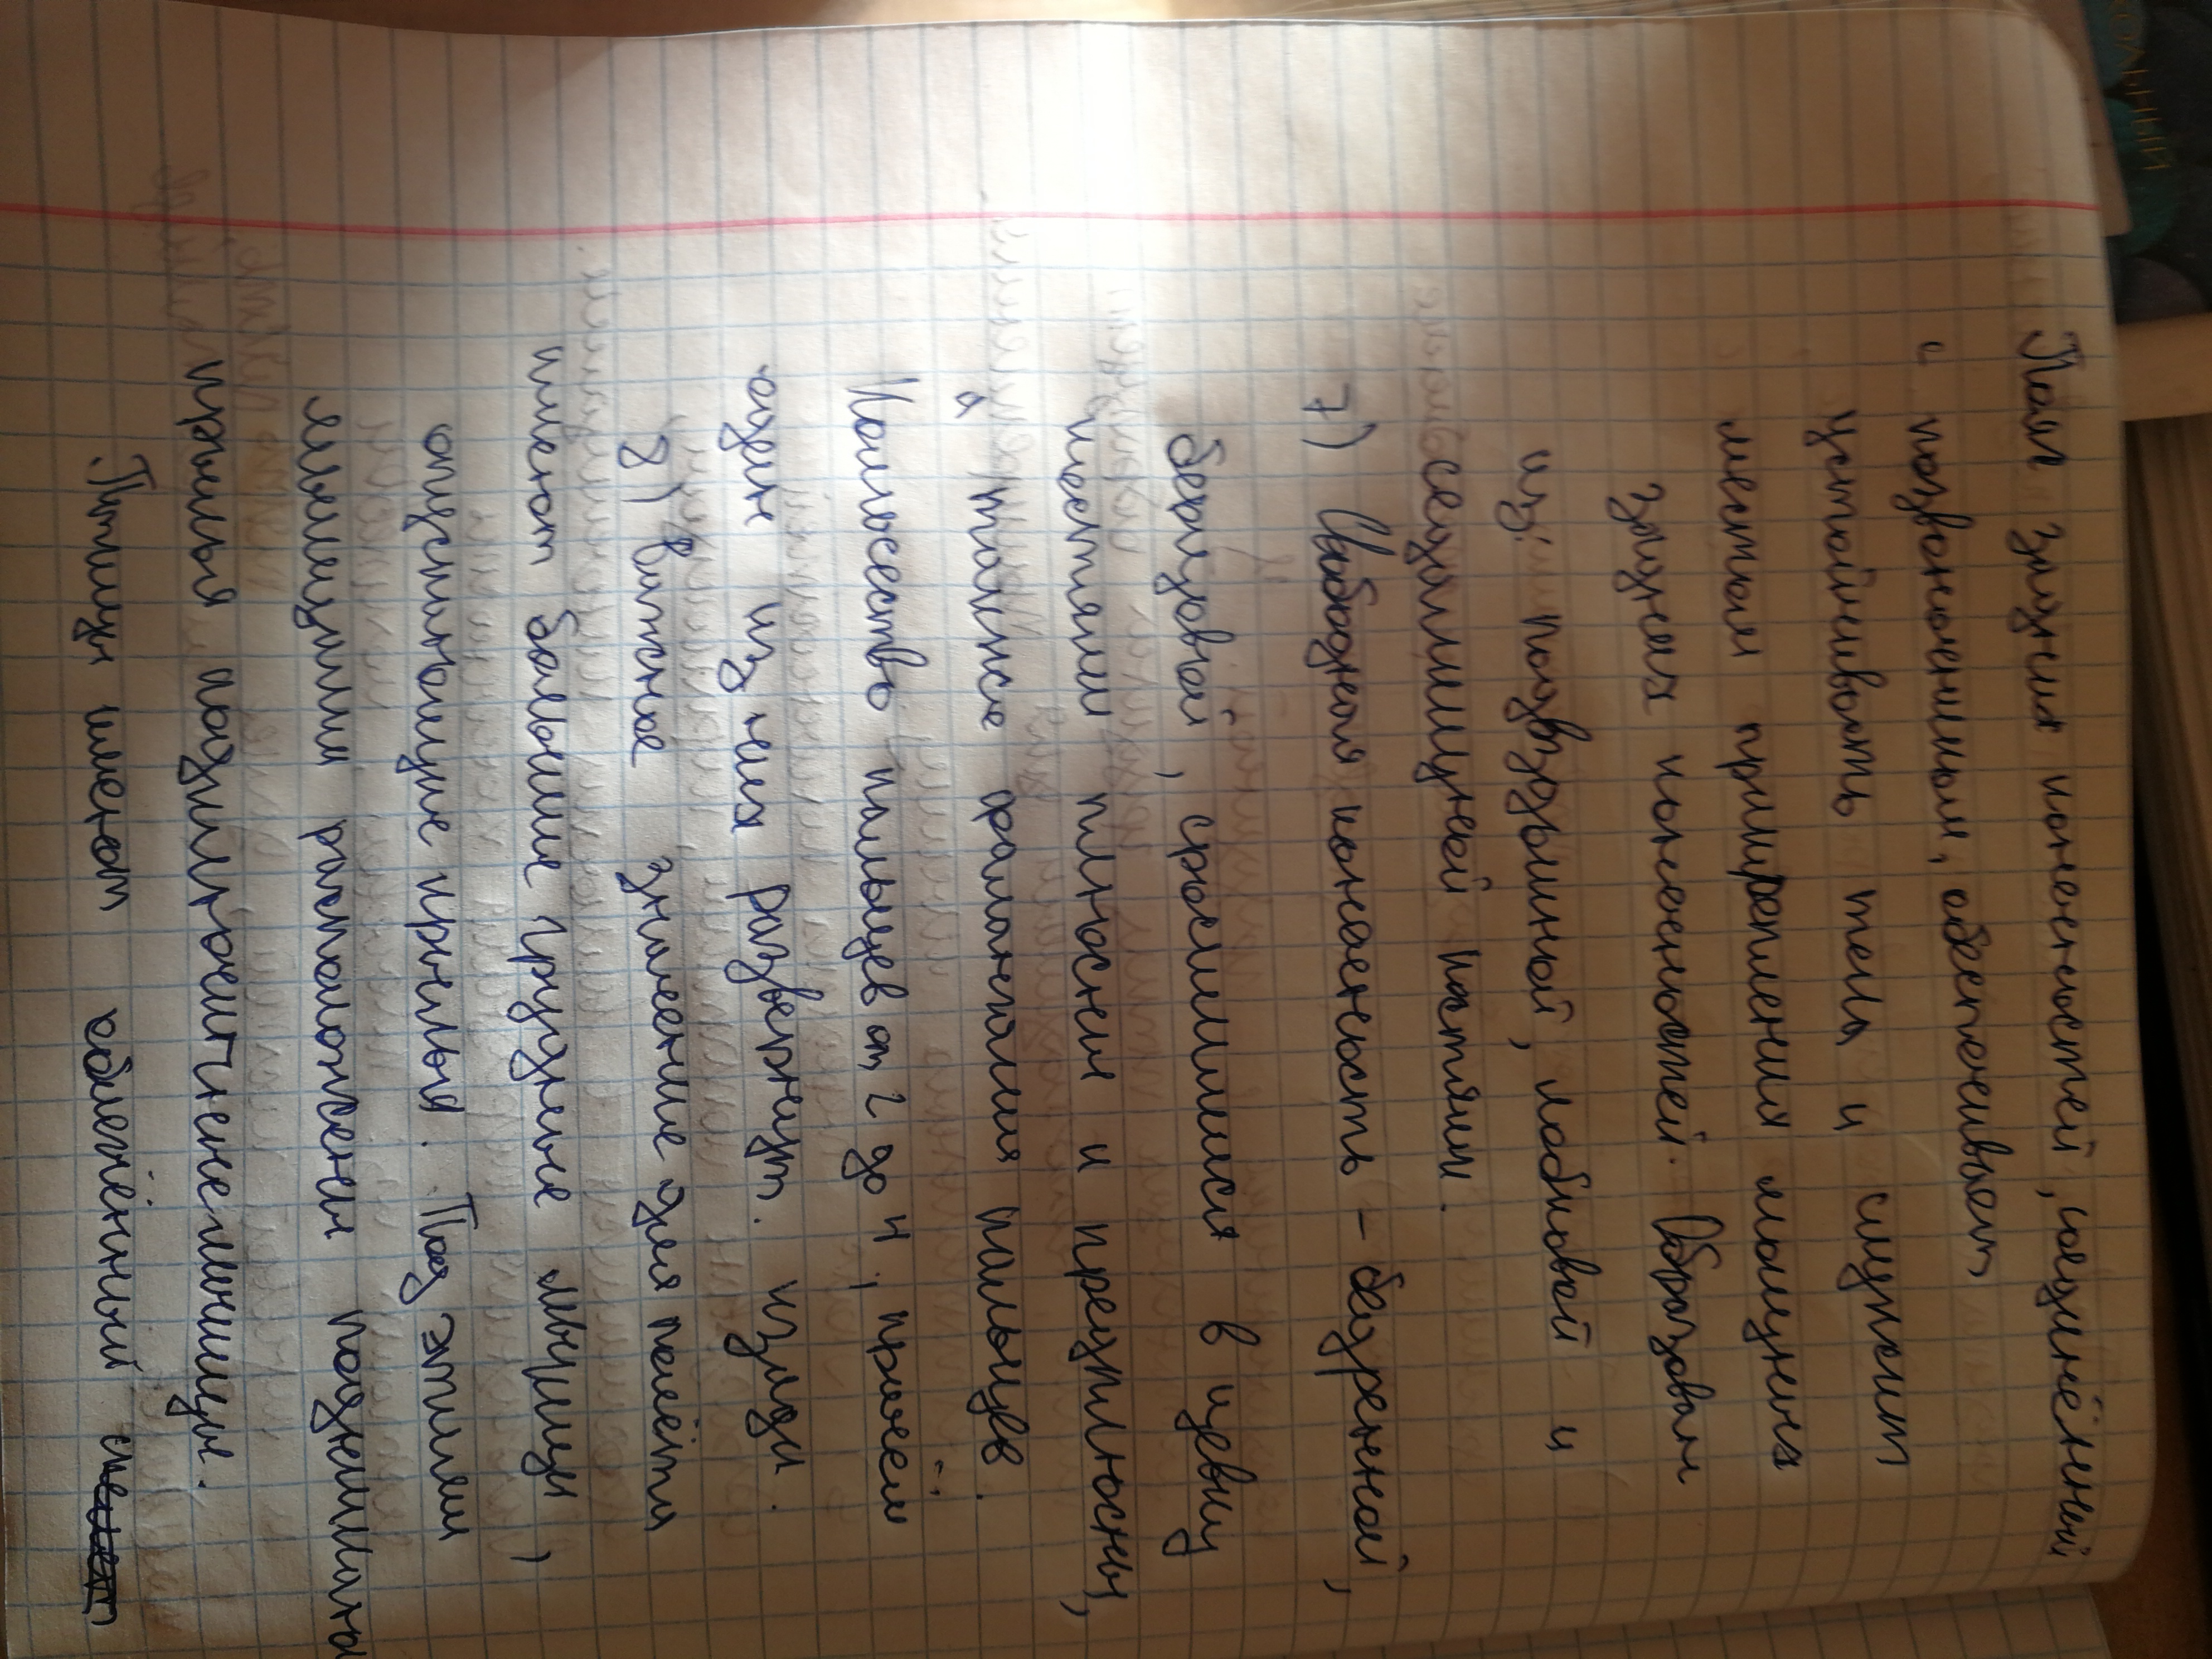 Пояс задних конечностей, соединённый
с позвоночником, обеспечивает
устойчивость тела и служит
местом прикрепления мощных
задних конечностей. Образован
из подвздошной, лобковой и
седалищной костями.
7) Свободная конечность - бедренной,
берцовой, срослимися в цевку
костями плюсны и предплюсны,
а также фалангами пальцев.
Количество пальцев от 2 до 4, причём
один из них развернут. назад.
8) Важное значение для полёта
имеют большие грудные мышцы,
опускающие крылья. Под этими
мышцами расположены поднимающ
крылья подключичные мышцы.
Птицы имеют облегчённый
ШКОЛЬНЫЙ